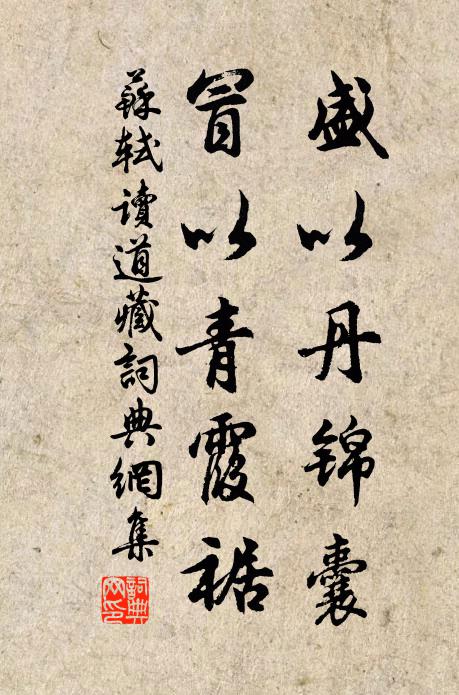 盛以丹錦囊
冒以青霞裾
蘇軾讀道藏詞典網集
詞典
网印